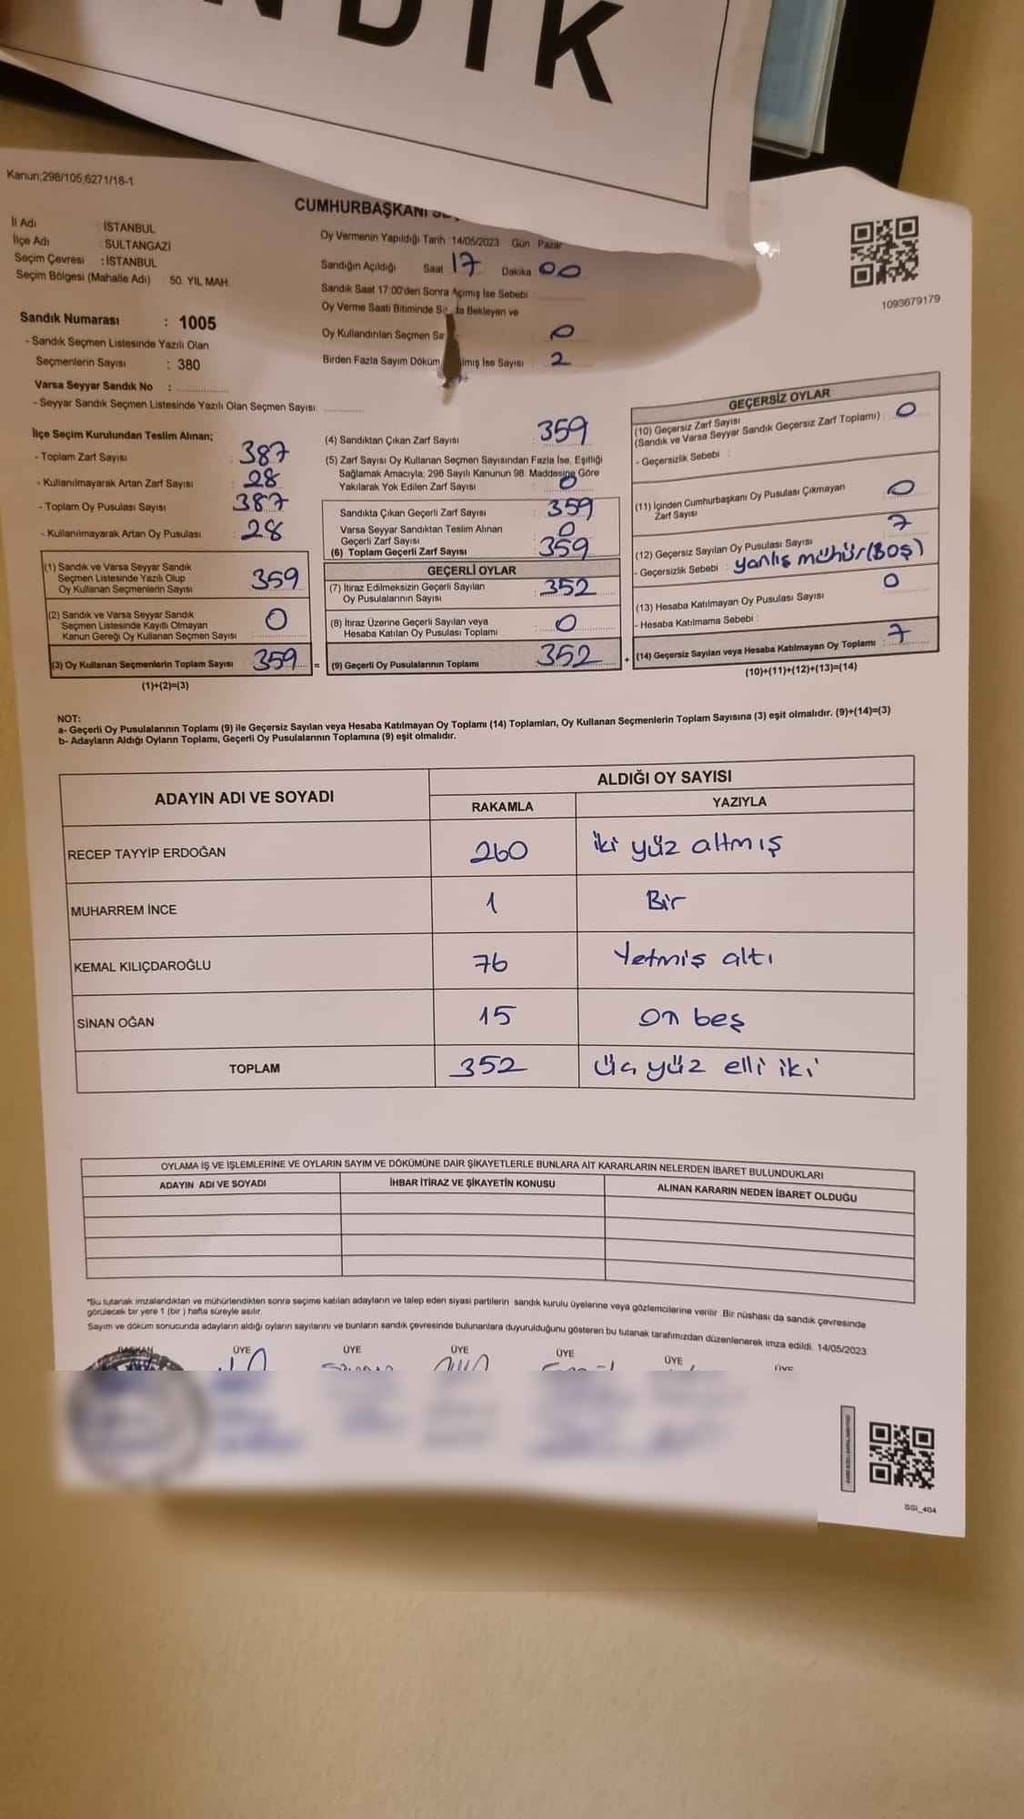 NDIK
Kanun;298/105;6271/18-1
CUMHURBAŞKANI
İl Adı : İSTANBUL
İlçe Adı : SULTANGAZİ
Seçim Çevresi : İSTANBUL
Seçim Bölgesi (Mahalle Adı) 50. YIL MAH.
Sandık Numarası : 1005
- Sandık Seçmen Listesinde Yazılı Olan
Seçmenlerin Sayısı : 380
Varsa Seyyar Sandık No :
- Seyyar Sandık Seçmen Listesinde Yazılı Olan Seçmen Sayısı:
Oy Vermenin Yapıldığı Tarih 14/05/2023 Gün Pazar
Sandığın Açıldığı Saat 17 Dakika 00
Sandık Saat 17:00'den Sonra Açımış İse Sebebi
Oy Verme Saati Bitiminde Bekleyen ve
Oy Kullandırılan Seçmen 0
Birden Fazla Sayım Döküm İse Sayısı 2
1093679179
İlçe Seçim Kurulundan Teslim Alınan;
- Toplam Zarf Sayısı 387
- Kullanılmayarak Artan Zarf Sayısı 28
- Toplam Oy Pusulası Sayısı 387
- Kullanılmayarak Artan Oy Pusulası 28
(1) Sandık ve Varsa Seyyar Sandık
Seçmen Listesinde Yazılı Olup
Oy Kullanan Seçmenlerin Sayısı 359
(2) Sandık ve Varsa Seyyar Sandık
Seçmen Listesinde Kayıtlı Olmayan
Kanun Gereği Oy Kullanan Seçmen Sayısı 0
(3) Oy Kullanan Seçmenlerin Toplam Sayısı 359 =
(1)+(2)=(3)
(4) Sandıktan Çıkan Zarf Sayısı : 359
(5) Zarf Sayısı Oy Kullanan Seçmen Sayısından Fazla İse, Eşitliği
Sağlamak Amacıyla; 298 Sayılı Kanunun 98. Maddesine Göre
Yakılarak Yok Edilen Zarf Sayısı 0
Sandıkta Çıkan Geçerli Zarf Sayısı 359
Varsa Seyyar Sandıktan Teslim Alınan
Geçerli Zarf Sayısı 0
(6) Toplam Geçerli Zarf Sayısı 359
GEÇERLİ OYLAR
(7) İtiraz Edilmeksizin Geçerli Sayılan
Oy Pusulalarının Sayısı 352
(8) İtiraz Üzerine Geçerli Sayılan veya
Hesaba Katılan Oy Pusulası Toplamı 0
(9) Geçerli Oy Pusulalarının Toplamı 352 +
GEÇERSİZ OYLAR
(10) Geçersiz Zarf Sayısı
(Sandık ve Varsa Seyyar Sandık Geçersiz Zarf Toplamı) 0
- Geçersizlik Sebebi :
(11) İçinden Cumhurbaşkanı Oy Pusulası Çıkmayan
Zarf Sayısı 0
(12) Geçersiz Sayılan Oy Pusulası Sayısı 7
- Geçersizlik Sebebi : yanlış mühür (Boş)
(13) Hesaba Katılmayan Oy Pusulası Sayısı 0
- Hesaba Katılmama Sebebi
(14) Geçersiz Sayılan veya Hesaba Katılmayan Oy Toplamı : 7
(10)+(11)+(12)+(13)=(14)
NOT:
a- Geçerli Oy Pusulalarının Toplamı (9) ile Geçersiz Sayılan veya Hesaba Katılmayan Oy Toplamı (14) Toplamları, Oy Kullanan Seçmenlerin Toplam Sayısına (3) eşit olmalıdır. (9)+(14)=(3)
b- Adayların Aldığı Oyların Toplamı, Geçerli Oy Pusulalarının Toplamına (9) eşit olmalıdır.
ADAYIN ADI VE SOYADI ALDIĞI OY SAYISI
RAKAMLA YAZIYLA
RECEP TAYYİP ERDOĞAN 260 iki yüz altmış
MUHARREM İNCE 1 Bir
KEMAL KILIÇDAROĞLU 76 Yetmiş altı
SİNAN OĞAN 15 On beş
TOPLAM 352 Üç yüz elli iki
OYLAMA İŞ VE İŞLEMLERİNE VE OYLARIN SAYIM VE DÖKÜMÜNE DAİR ŞİKAYETLERLE BUNLARA AİT KARARLARIN NELERDEN İBARET BULUNDUKLARI
ADAYIN ADI VE SOYADI İHBAR İTİRAZ VE ŞİKAYETİN KONUSU ALINAN KARARIN NEDEN İBARET OLDUĞU
*Bu tutanak imzalandıktan ve mühürlendikten sonra seçime katılan adayların ve talep eden siyasi partilerin sandık kurulu üyelerine veya gözlemcilerine verilir. Bir nüshası da sandık çevresinde
görülecek bir yere 1 (bir) hafta süreyle asılır.
Sayım ve döküm sonucunda adayların aldığı oyların sayılarını ve bunların sandık çevresinde bulunanlara duyurulduğunu gösteren bu tutanak tarafımızdan düzenlenerek imza edildi. 14/05/2023
BAŞKAN ÜYE ÜYE ÜYE ÜYE ÜYE ÜYE
SSI_404